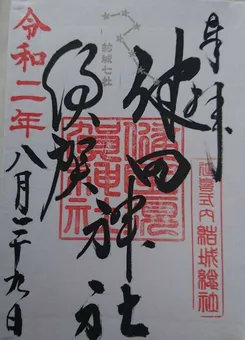 奉拝
延喜式内 結城總社
結城七社
健田
須賀
神社
健田須
賀神社
令和二年
八月二十九日